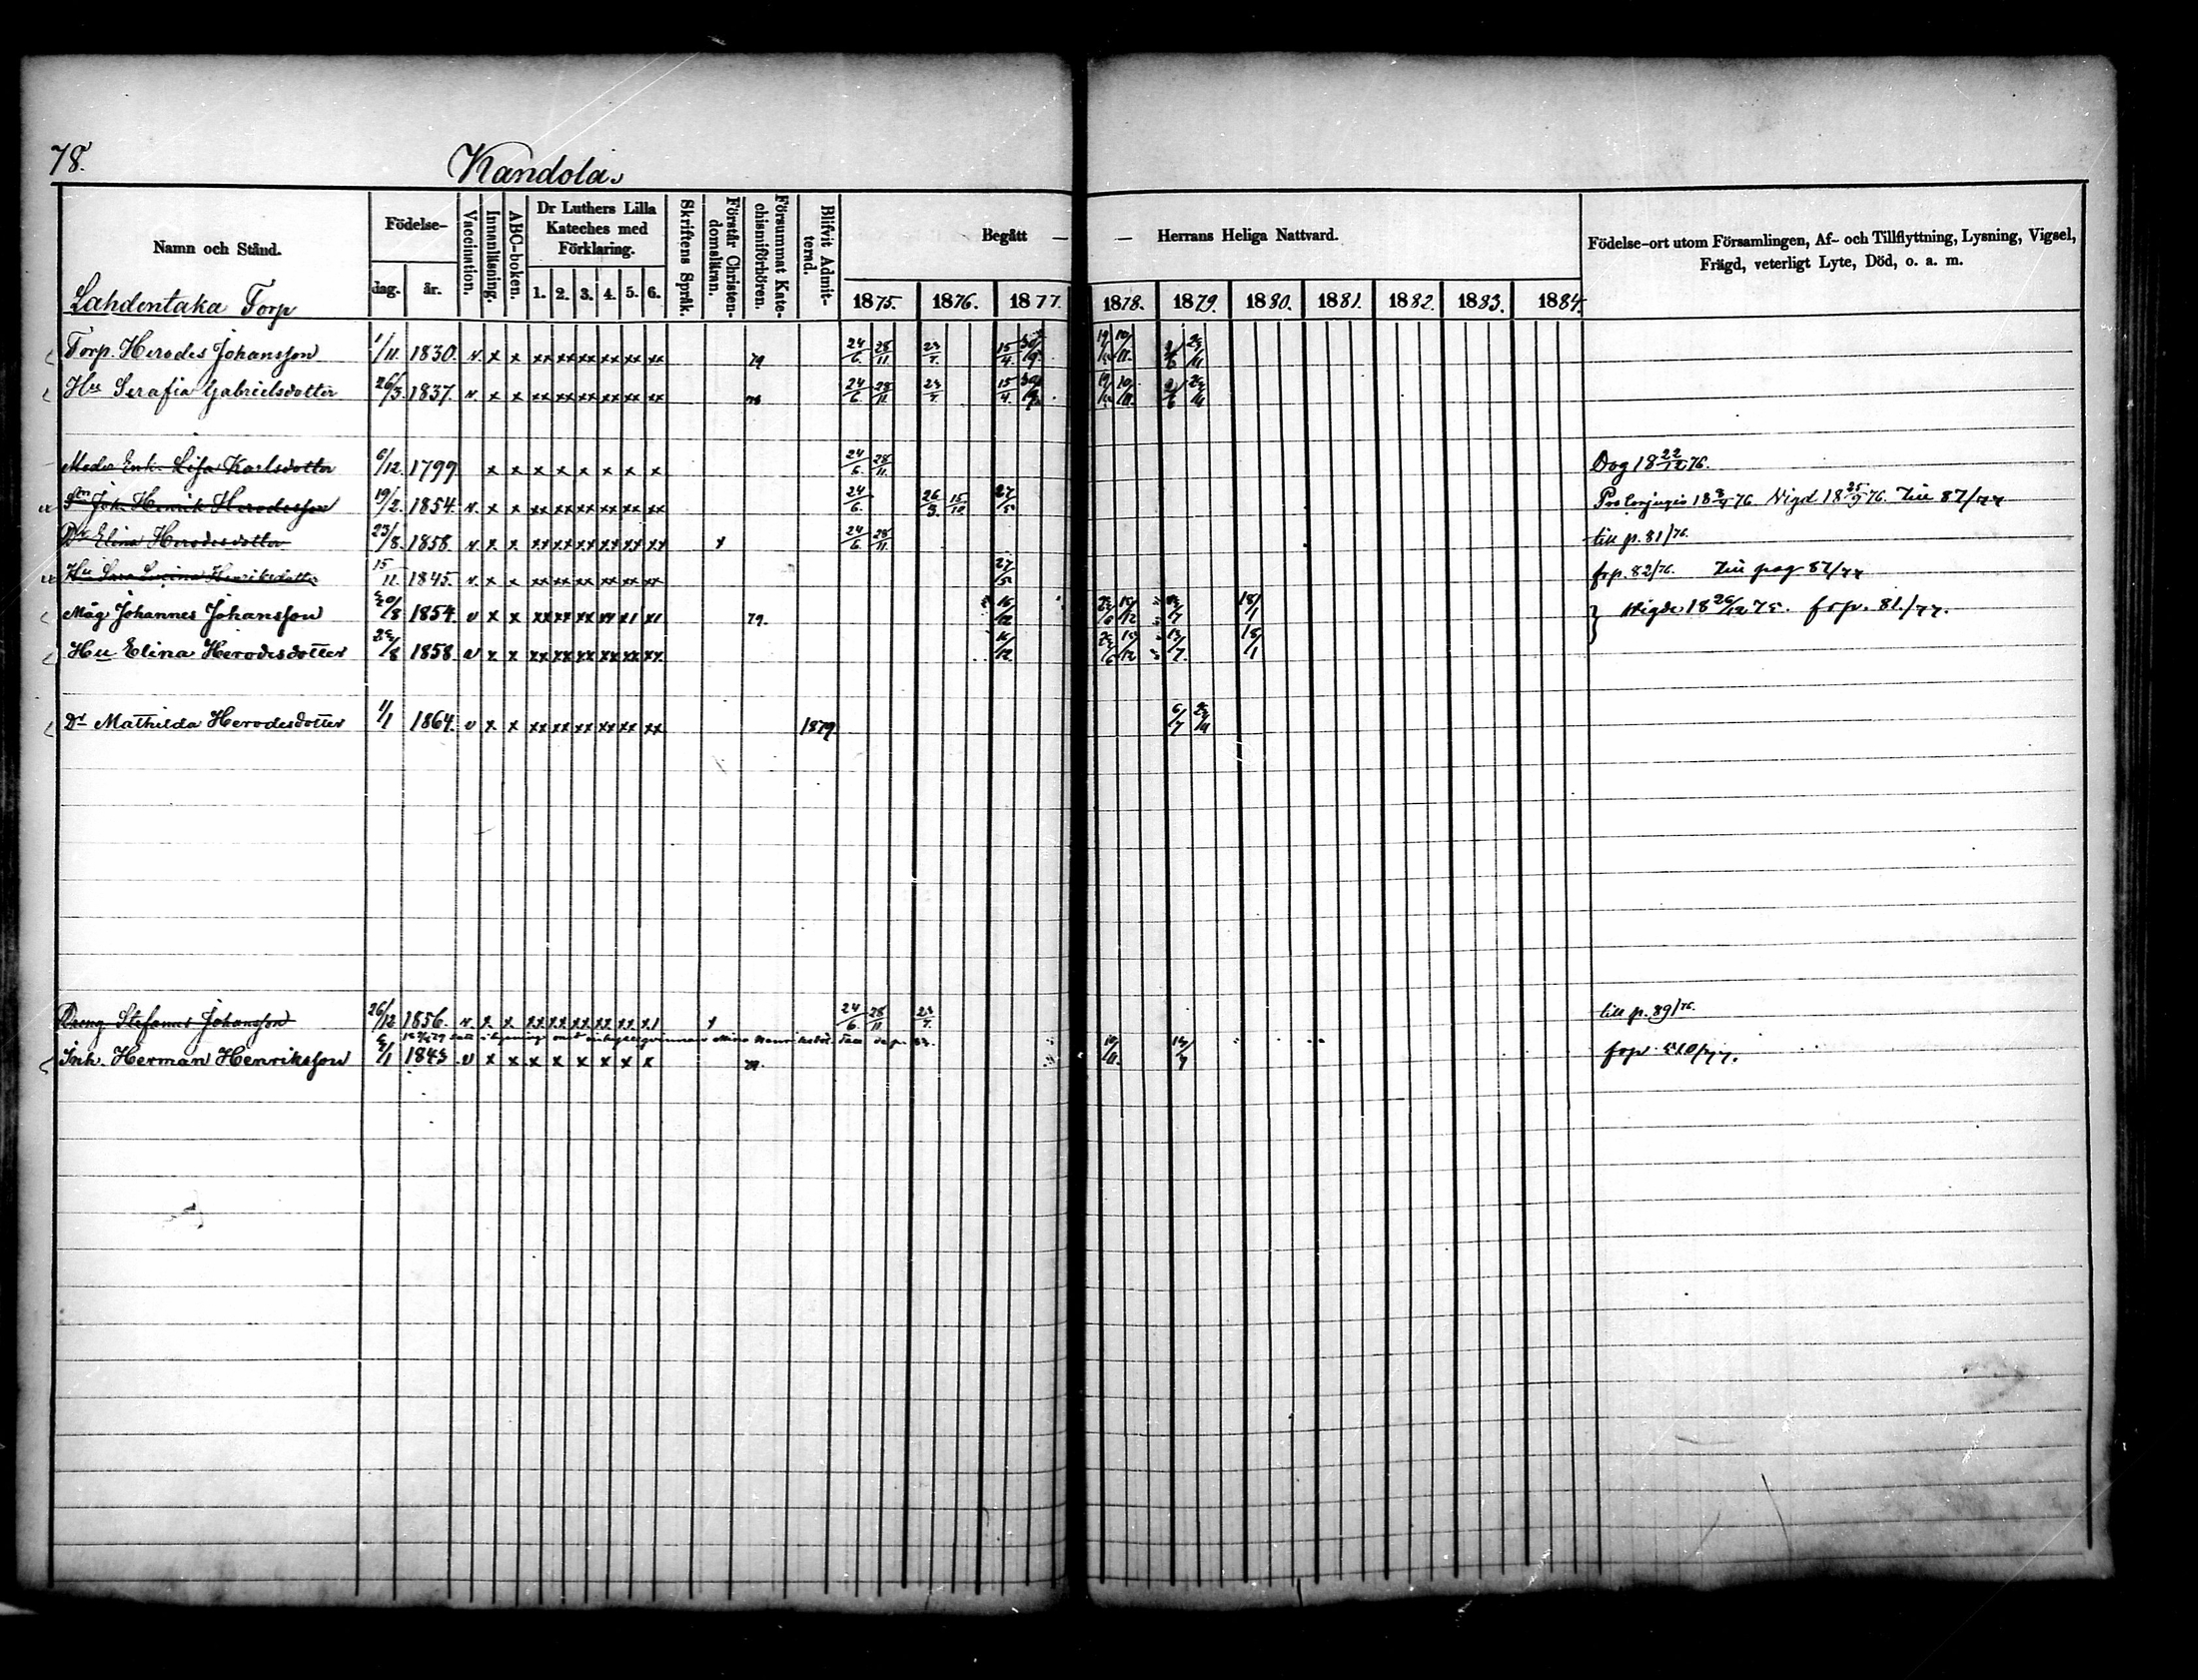 78.
Kandola.
Namn och Stånd.
Födelse-
dag.
år.
Vaccination.
Innanläsning.
ABC-boken.
Dr Luthers Lilla Kateches med Förklaring.
1. 2. 3. 4. 5. 6.
Skriftens Språk.
Förstår Christendomsläran.
Försummat Katechismiförhören.
Blifvit Admitterad.
Begått — — Herrans Heliga Nattvard.
1875. 1876. 1877. 1878. 1879. 1880. 1881. 1882. 1883. 1884.
Födelse-ort utom Församlingen, Af- och Tillflyttning, Lysning, Vigsel,
Frägd, veterligt Lyte, Död, o. a. m.
Lahdentaka Torp
Torp. Herodes Johansson 1/11. 1830. v. x x xx xx xx xx xx xx 79 24/6. 28/11. 23/4. 15/4.
Hu Serafia Gabrielsdotter 26/3. 1837. v. x x xx xx xx xx xx xx 24/6. 28/11. 23/4. 15/4.
Moder Enk. Lisa Karlsdotter 6/12. 1799 x x x x x x x x 24/6. 28/11. Dog 18 22/12 76.
Sn Joh. Henrik Herodesson 19/2. 1854. v. x x xx xx xx xx xx xx 24/6. 26/3. 15/10 27/5 Vigd 18 25/9 76. Till 87/77
Dr Elina Herodesdotter 23/8. 1858. v. x x xx xx xx xx xx xx x 24/6. 28/11. till p. 81/76.
Hu Henriksdotter 15/11. 1845. v. x x xx xx xx xx xx xx 27/5 frp. 82/76. Till pag 87/77
Måg Johannes Johansson 1854. v x x 79. 16/12 18/1 Vigde 18 26/12 75. frp. 81./77.
Hu Elina Herodesdotter 1858 v x x xx xx xx xx xx xx 16/12. 18/1
Dr Mathilda Herodesdotter 1/1 1864. v x x xx xx xx xx xx xx 1879 6/7
Dreng Stefanus Johansson 26/12 1856. v. x x xx xx xx xx xx x1 24/6. 28/11. 23/4. till p. 89/76.
Inh. Herman Henriksson 1843 v x x x x x x x x frp.